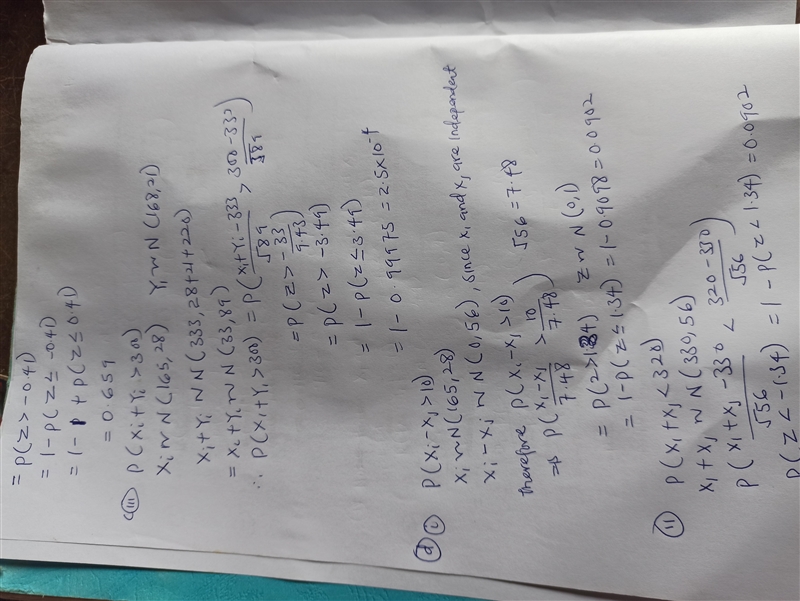 = P(Z > -0.41)
= 1 - P(Z ≤ -0.41)
= 1 - 1 + P(Z ≤ 0.41)
= 0.659
(iii) P(Xi + Yi > 300)
Xi ~ N(165, 28) Yi ~ N(168, 21)
Xi + Yi ~ N(333, 28+21+220)
= Xi + Yi ~ N(33, 89)
∴ P(Xi + Yi > 300) = P(Xi + Yi - 333 / √89 > 300 - 333 / √89)
= P(Z > -33 / 9.43)
= P(Z > -3.49)
= 1 - P(Z ≤ 3.49)
= 1 - 0.99975 = 2.5 × 10^-4
(d) (i) P(Xi - Xj > 10)
Xi ~ N(165, 28)
Xi - Xj ~ N(0, 56), since Xi and Xj are independent
therefore P(Xi - Xj > 10) √56 = 7.48
⇒ P(Xi - Xj / 7.48 > 10 / 7.48) Z ~ N(0,1)
= P(Z > 1.34)
= 1 - P(Z ≤ 1.34) = 1 - 0.9098 = 0.0902
(ii) P(Xi + Xj < 320)
Xi + Xj ~ N(330, 56)
P(Xi + Xj - 330 / √56 < 320 - 330 / √56)
P(Z < -1.34) = 1 - P(Z < 1.34) = 0.0902